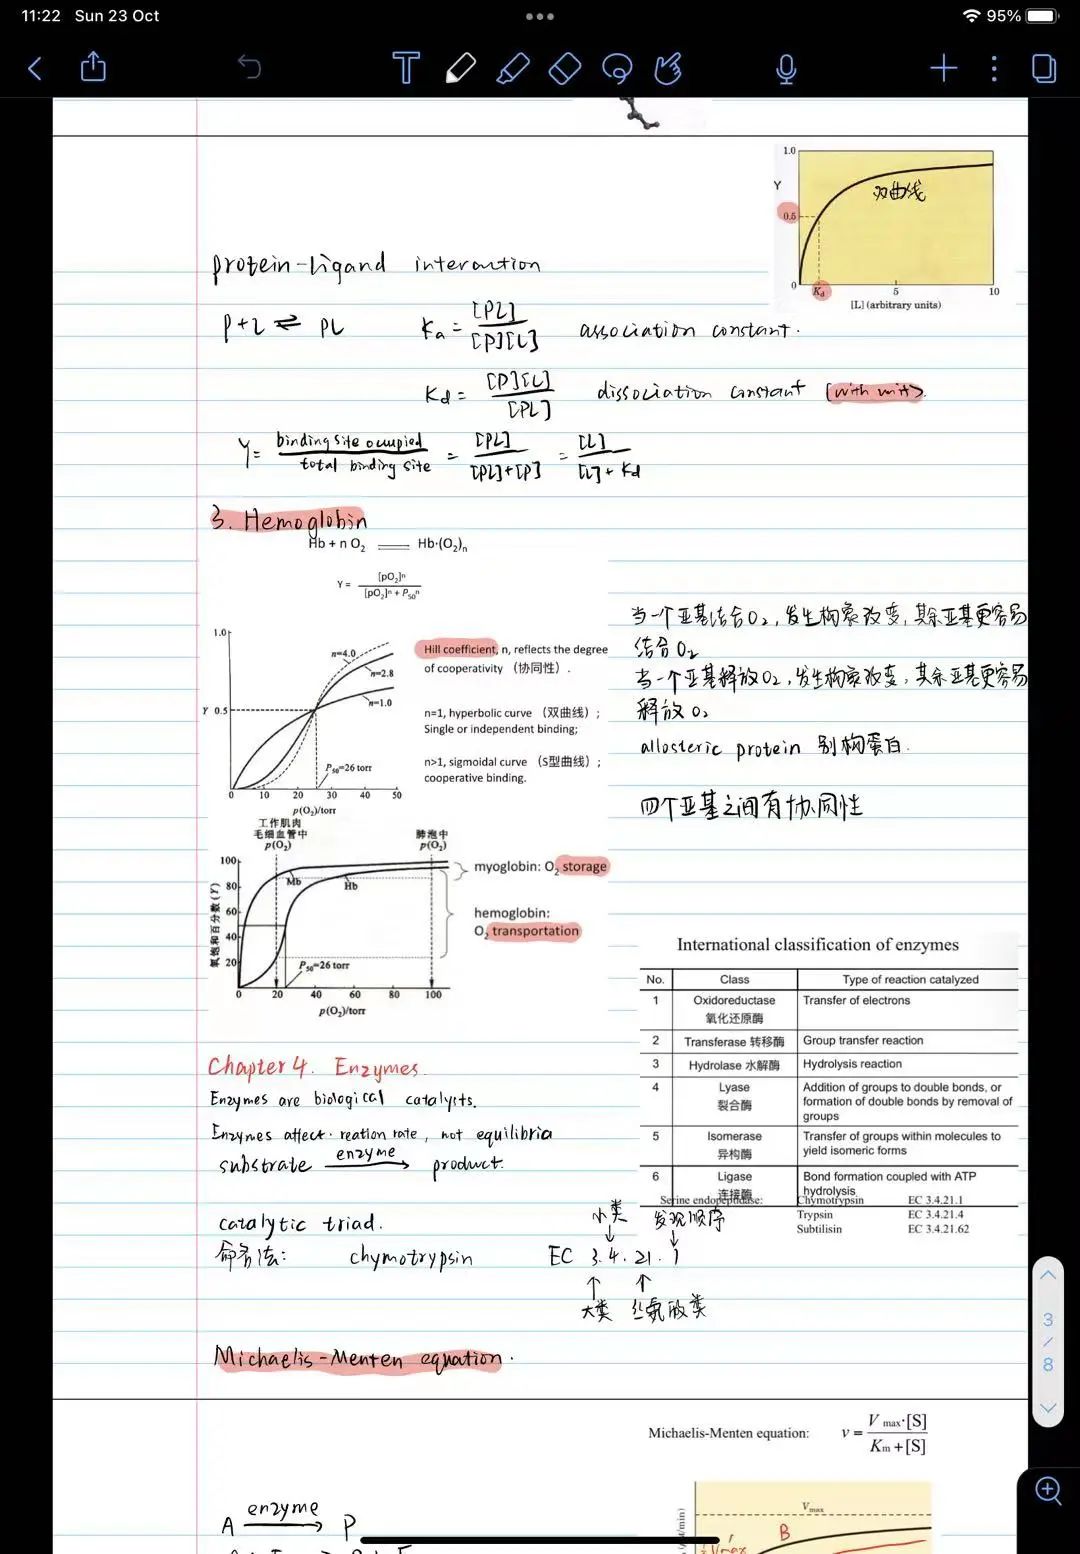 11:22 Sun 23 Oct
95%
T
1.0
Y
双曲线
0.5
0
Kd
5
10
[L] (arbitrary units)
protein-ligand interaction
P+L ⇌ PL Ka = [PL] / [P][L] association constant.
Kd = [P][L] / [PL] dissociation constant (with unit).
Y = binding site occupied / total binding site = [PL] / [PL]+[P] = [L] / [L]+Kd
3. Hemoglobin
Hb + n O₂ ⇌ Hb·(O₂)n
Y = [pO₂]ⁿ / [pO₂]ⁿ + P₅₀ⁿ
当一个亚基结合O₂,发生构象改变,其余亚基更容易
结合O₂
当一个亚基释放O₂,发生构象改变,其余亚基更容易
释放O₂
allosteric protein 别构蛋白.
四个亚基之间有协同性
1.0
n=4.0
n=2.8
n=1.0
Y 0.5
P₅₀=26 torr
0 10 20 30 40 50
p(O₂)/torr
Hill coefficient, n, reflects the degree
of cooperativity （协同性）.
n=1, hyperbolic curve （双曲线）;
Single or independent binding;
n>1, sigmoidal curve （S型曲线）;
cooperative binding.
工作肌肉
毛细血管中
p(O₂)
肺泡中
p(O₂)
氧饱和百分数(Y)
100
80
60
40
20
Mb
Hb
P₅₀=26 torr
0 20 40 60 80 100
p(O₂)/torr
myoglobin: O₂ storage
hemoglobin:
O₂ transportation
International classification of enzymes
No. Class Type of reaction catalyzed
1 Oxidoreductase Transfer of electrons
氧化还原酶
2 Transferase 转移酶 Group transfer reaction
3 Hydrolase 水解酶 Hydrolysis reaction
4 Lyase Addition of groups to double bonds, or
裂合酶 formation of double bonds by removal of
groups
5 Isomerase Transfer of groups within molecules to
异构酶 yield isomeric forms
6 Ligase Bond formation coupled with ATP
连接酶 hydrolysis
Serine endopeptidase: Chymotrypsin EC 3.4.21.1
Trypsin EC 3.4.21.4
Subtilisin EC 3.4.21.62
Chapter 4. Enzymes.
Enzymes are biological catalysts.
Enzymes affect reation rate, not equilibria
substrate enzyme → product.
catalytic triad.
小类 发现顺序
命名法: chymotrypsin EC 3.4.21.1
大类 丝氨酸类
Michaelis-Menten equation.
3
/
8
Michaelis-Menten equation: v = Vmax·[S] / Km + [S]
A enzyme → P
Vmax
B